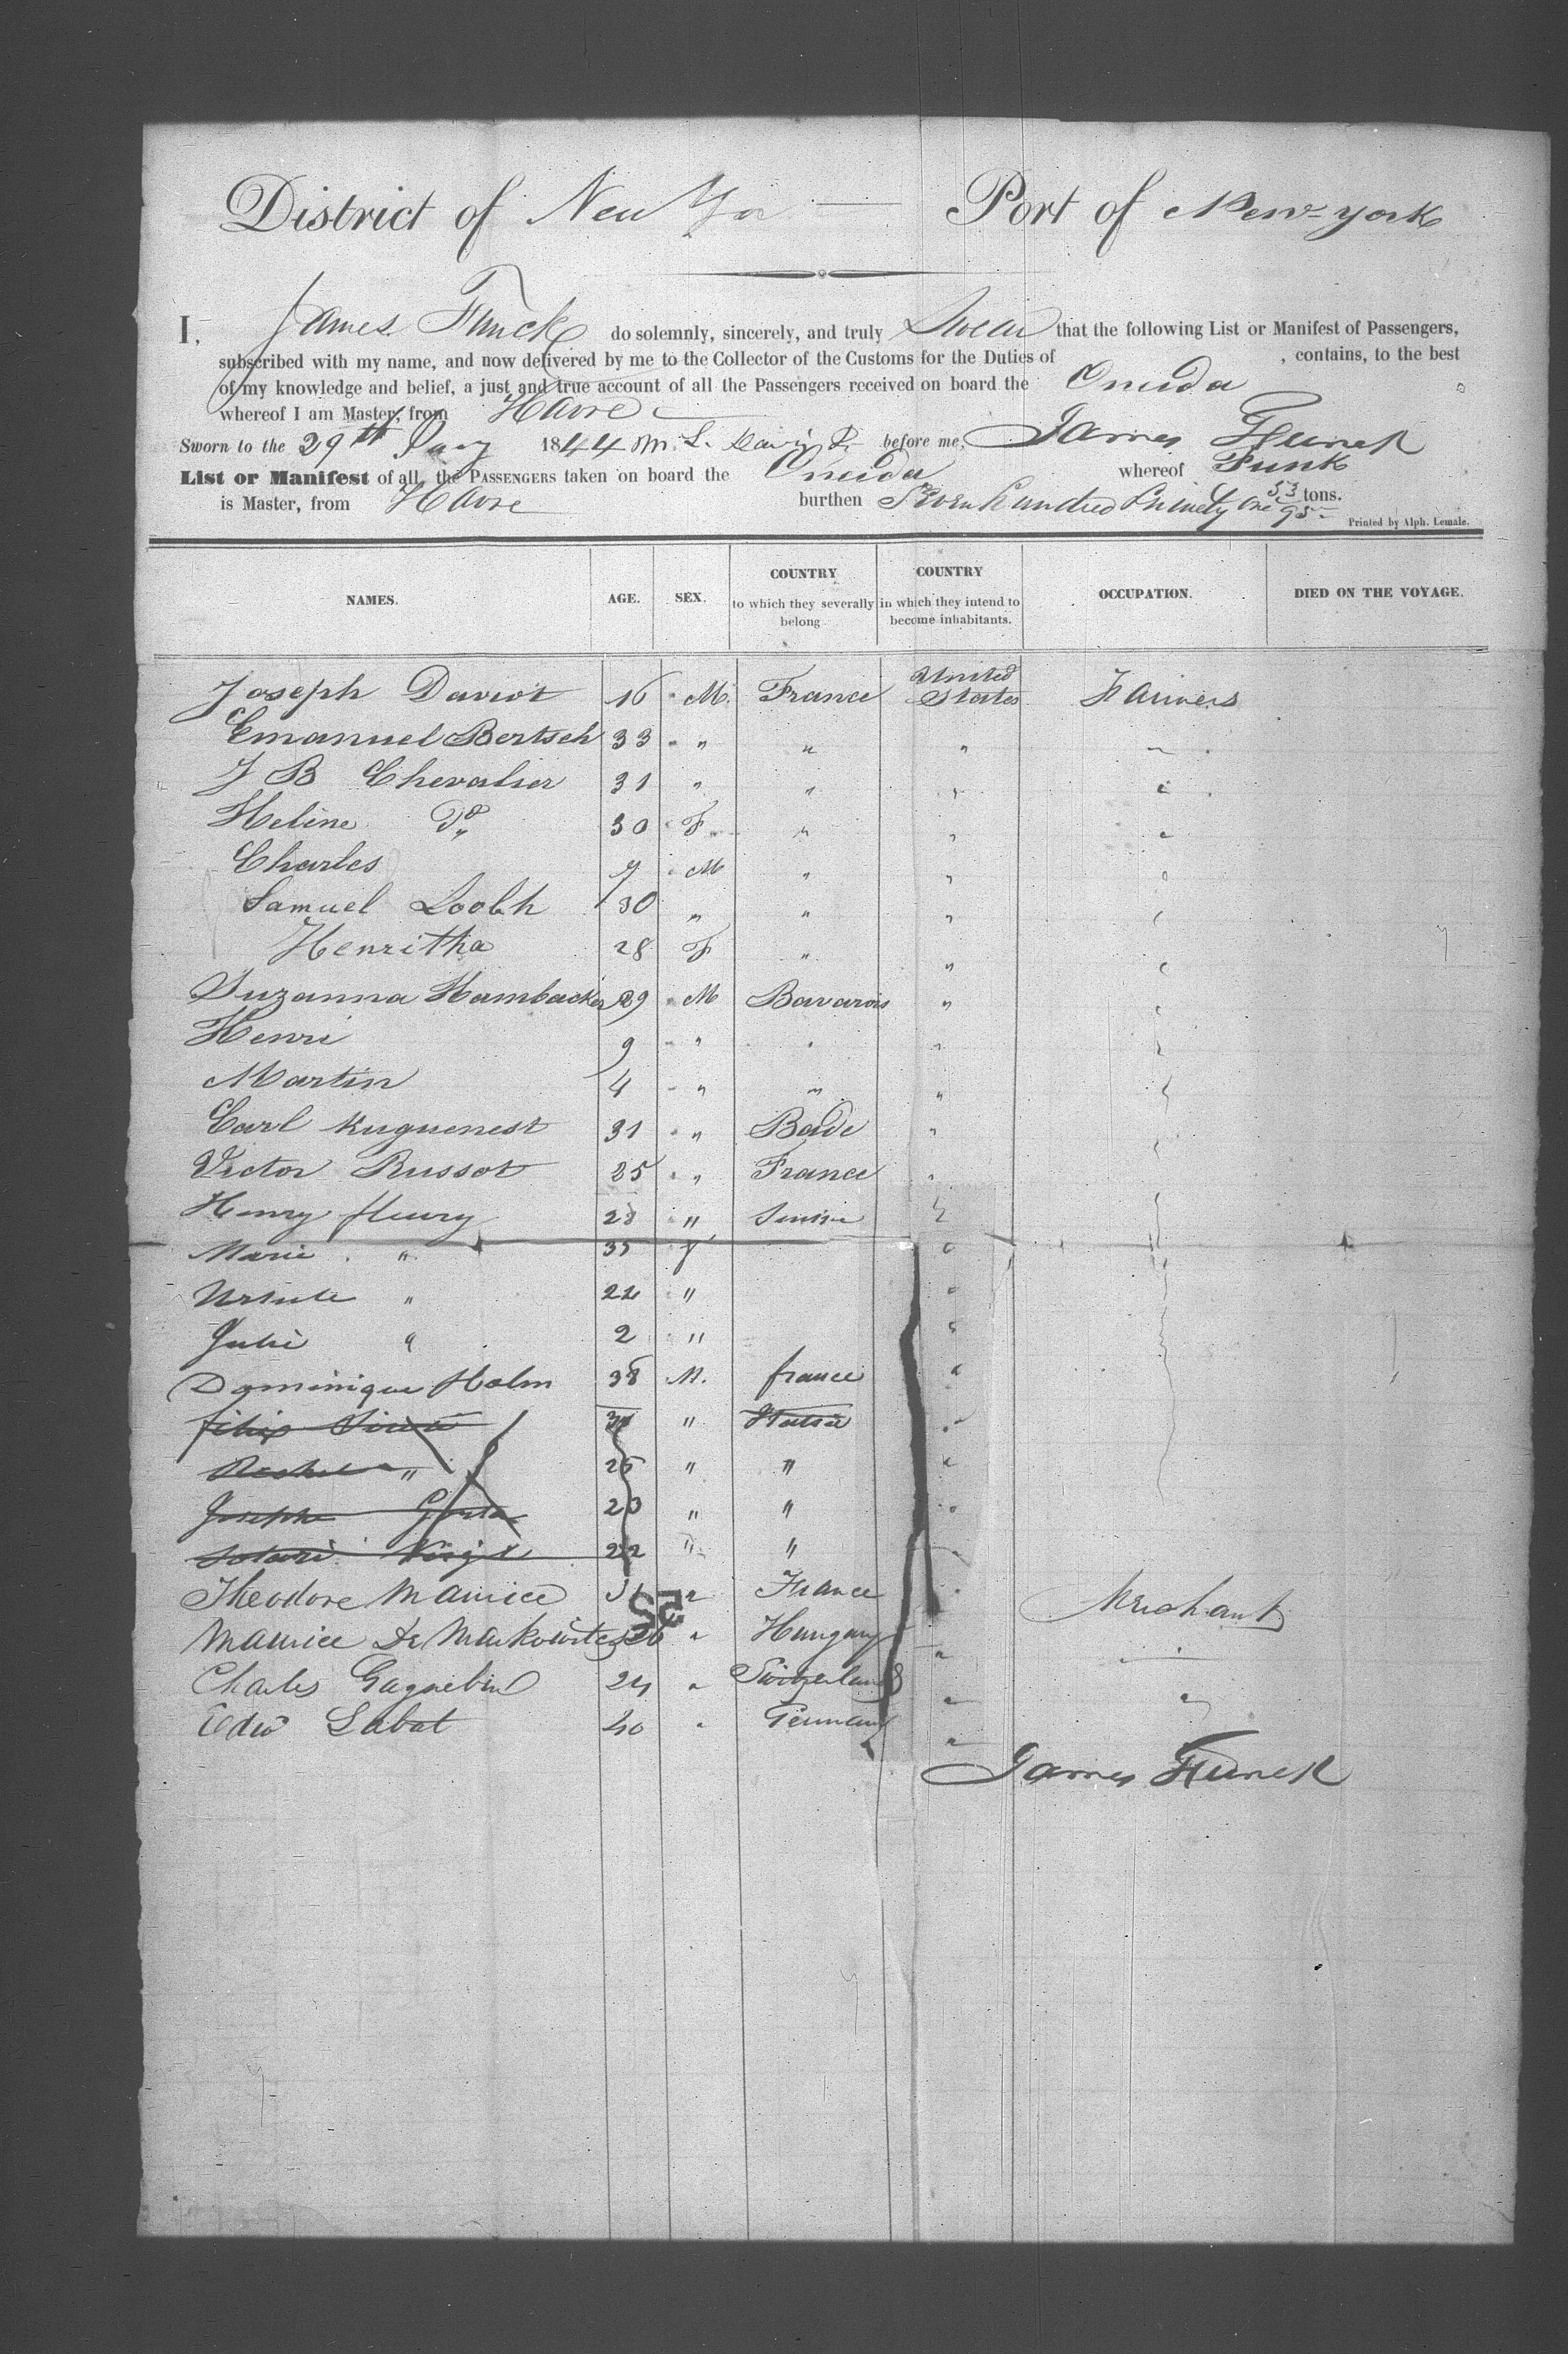 District of New Yor Port of New-york
I, James Funck do solemnly, sincerely, and truly Swear that the following List or Manifest of Passengers,
subscribed with my name, and now delivered by me to the Collector of the Customs for the Duties of , contains, to the best
of my knowledge and belief, a just and true account of all the Passengers received on board the Oneida
whereof I am Master, from Havre
Sworn to the 29th Jany 1844 before me, James Funck
List or Manifest of all the Passengers taken on board the Oneida whereof Funk
is Master, from Havre burthen Seven hundred & ninety one 53/95 tons.
Printed by Alph. Lemale.
NAMES. AGE. SEX. COUNTRY to which they severally belong COUNTRY in which they intend to become inhabitants. OCCUPATION. DIED ON THE VOYAGE.
Joseph Daviot 16 M. France United States Farmers
Emanuel Bertsch 33 " " " "
J B Chevalier 31 " " " "
Heline Do 30 F " " "
Charles 7 M " " "
Samuel Loobh 30 " " " "
Henritha 28 F " " "
Suzanna Hambacher 29 M Bavarois " "
Henri 9 " " " "
Martin 4 " " " "
Carl Kuguenest 31 " Bade " "
Victor Russot 25 " France " "
Henry fleury 28 " Suisse " "
Marie " 35 f "
Ursule " 22 " "
Julie " 2 " "
Dominique Holm 38 M. france "
" "
" 25 " " "
Joseph 20 " " "
22 " "
Theodore Maurice France " Merchant
Maurice De Markowitz 26 " Hungary " "
Charles Gagnebin 24 " Switzerland " "
Edw Labat 40 " Germany "
James Funck